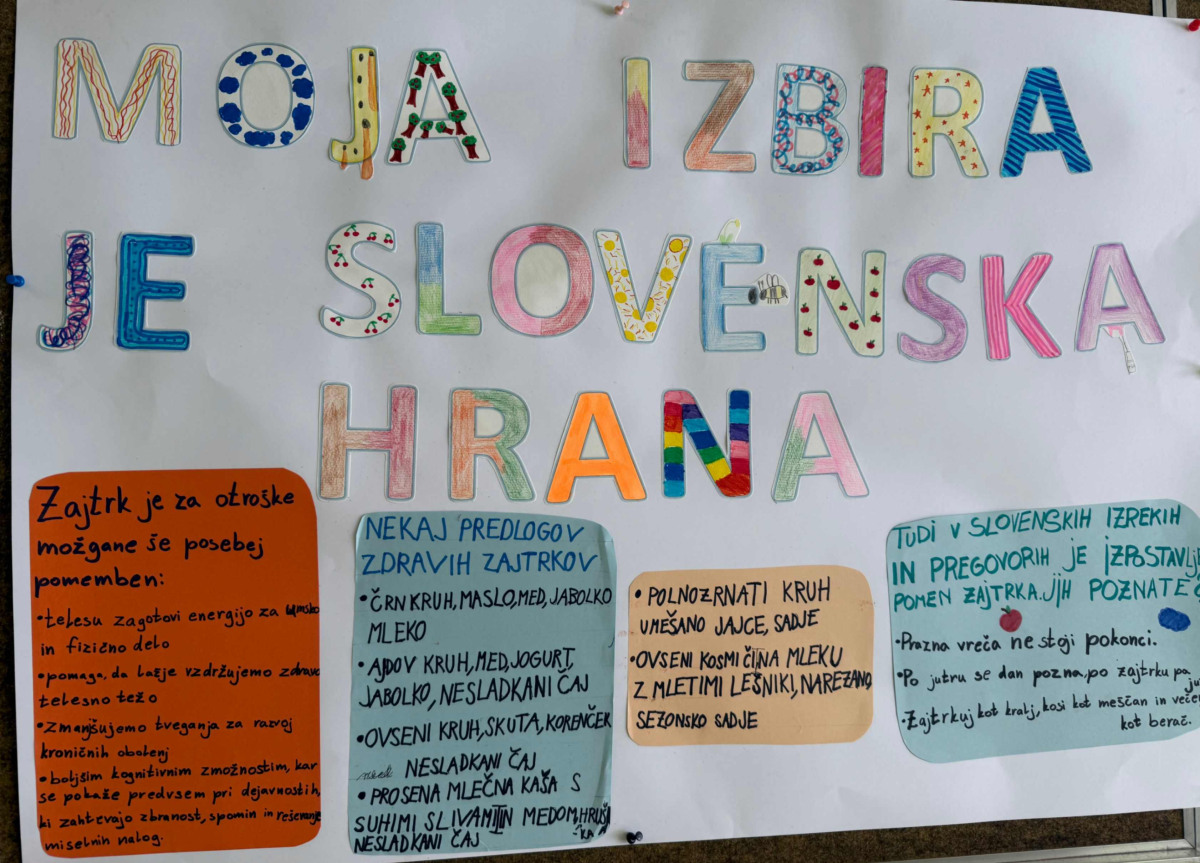 MOJA IZBIRA
JE SLOVENSKA
HRANA
Zajtrk je za otroške
možgane še posebej
pomemben:
•telesu zagotovi energijo za umsko
in fizično delo
•pomaga, da lažje vzdržujemo zdravo
telesno težo
•Zmanjšujemo tveganja za razvoj
kroničnih obolenj
•boljšim kognitivnim zmožnostim, kar
se pokaže predvsem pri dejavnostih,
ki zahtevajo zbranost, spomin in reševanje
miselnih nalog.
NEKAJ PREDLOGOV
ZDRAVIH ZAJTRKOV
•ČRN KRUH, MASLO, MED, JABOLKO
MLEKO
•AJDOV KRUH, MED, JOGURT,
JABOLKO, NESLADKANI ČAJ
•OVSENI KRUH, SKUTA, KORENČEK
NESLADKANI ČAJ
•PROSENA MLEČNA KAŠA S
SUHIMI SLIVAMI IN MEDOM, HRUŠKA
NESLADKANI ČAJ
•POLNOZRNATI KRUH
UMEŠANO JAJCE, SADJE
•OVSENI KOSMIČI NA MLEKU
Z MLETIMI LEŠNIKI, NAREZANO
SEZONSKO SADJE
TUDI V SLOVENSKIH IZREKIH
IN PREGOVORIH JE IZPOSTAVLJE
POMEN ZAJTRKA. JIH POZNATE
•Prazna vreča ne stoji pokonci.
•Po jutru se dan pozna, po zajtrku pa
ju
•Zajtrkuj kot kralj, kosi kot meščan in veče
kot berač.